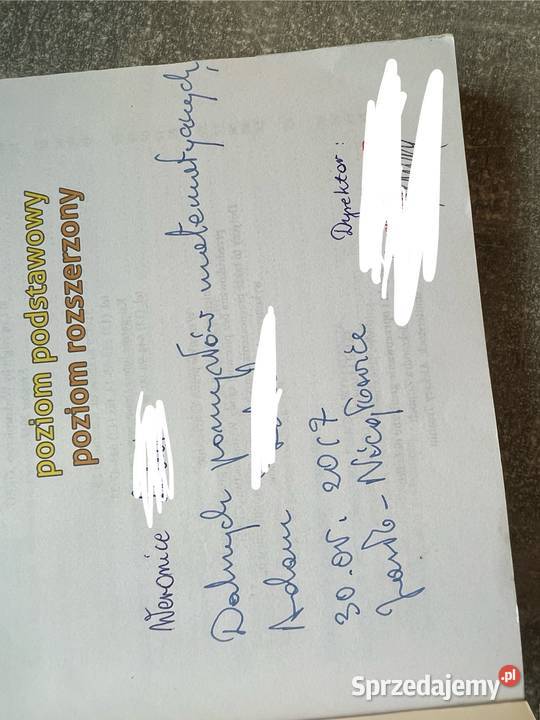 poziom podstawowy
poziom rozszerzony
Weronice
Dalszych pomysłów matematycznych,
Adam
30.05.2017
Jasło-
Dyrektor:
Sprzedajemy.pl